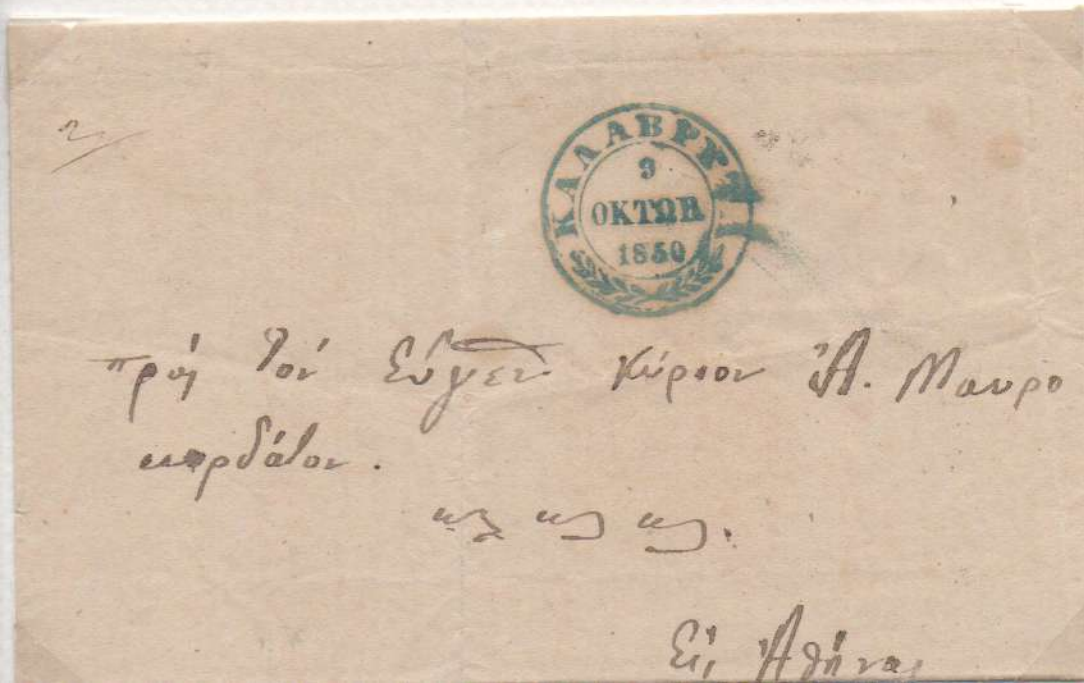 ΚΑΛΑΒΡΥΤ
9
ΟΚΤΩΒ
1850
πρὸς τὸν Εὐγεν. Κύριον Ἀ. Μαυρο
κορδάτον.
κλ κλ κλ.
Εἰς Ἀθήνας